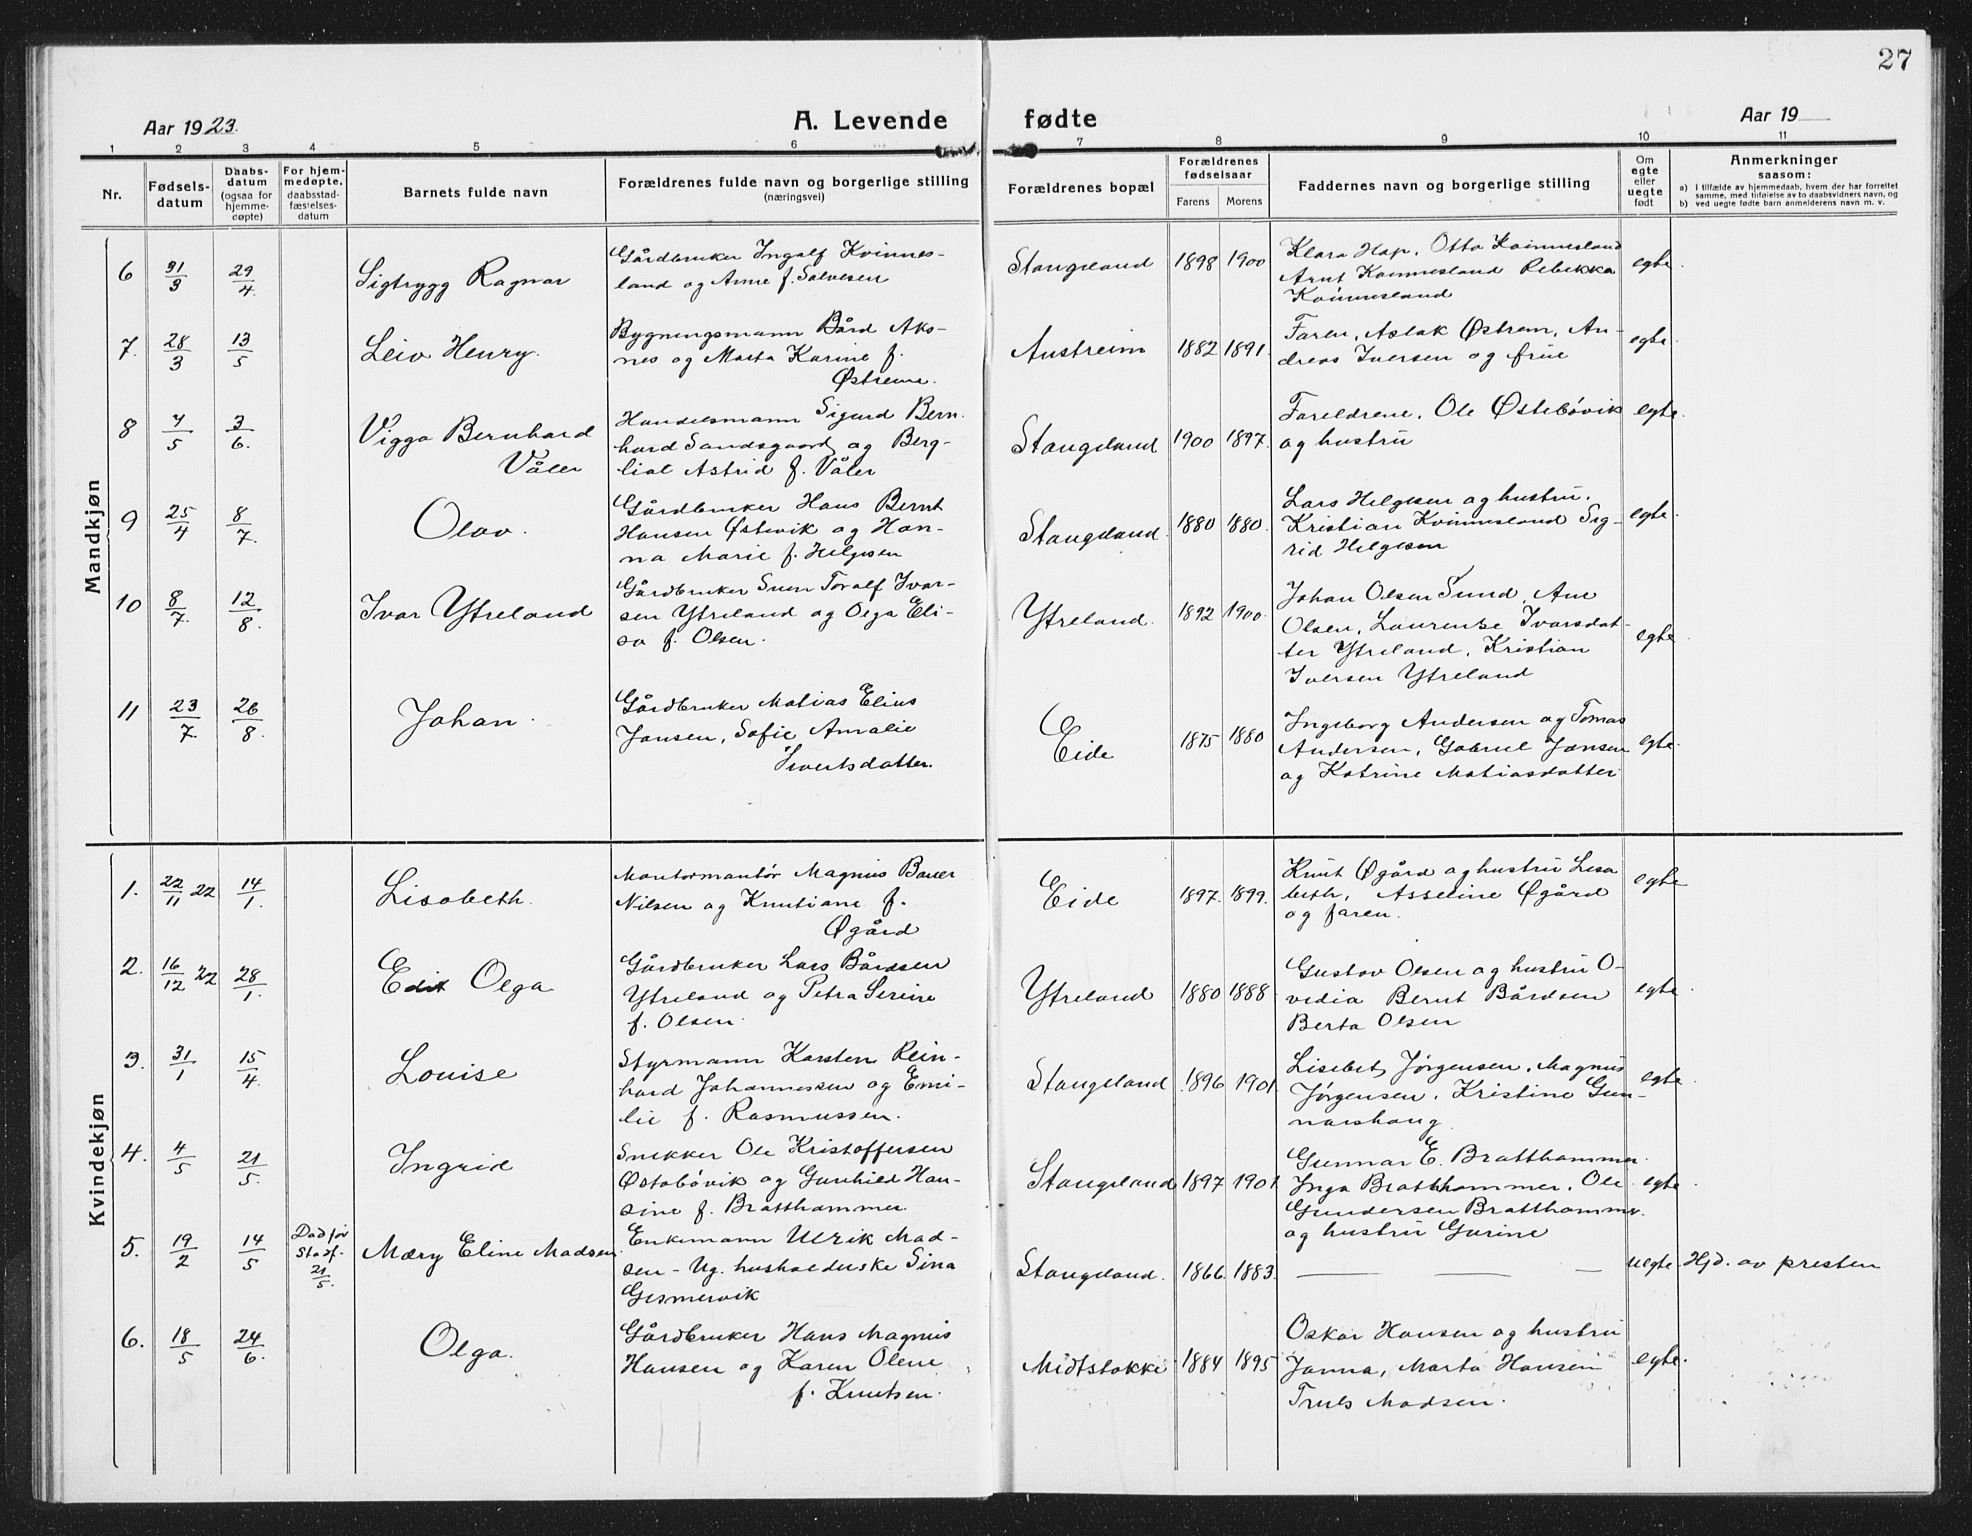 27
Aar 1923.
A. Levende fødte
Aar 19
1 2 3 4 5 6 7 8 9 10 11
Nr.
Fødsels-
datum
Daabs-
datum
(ogsaa for
hjemme-
døpte)
For hjem-
medøpte,
daabsstad-
fæstelses-
datum
Barnets fulde navn
Forældrenes fulde navn og borgerlige stilling
(næringsvei)
Forældrenes bopæl
Forældrenes
fødselsaar
Farens Morens
Faddernes navn og borgerlige stilling
Om
egte
eller
uegte
født
Anmerkninger
saasom:
a) I tilfælde av hjemmedaab, hvem der har forrettet
samme, med tilføielse av to daabsvidners navn, og
b) ved uegte fødte barn anmelderens navn m. v.
Mandkjøn
6 31/3 29/4. Sigtrygg Ragnar
Gårdbruker Ingolf Kvinnes-
land og Anne f. Salvesen
Stangeland 1898 1900
Klara Hap, Otto Kvinnesland
Arnt Kvinnesland Rebekka
Kvinnesland
egte.
7. 28/3 13/5 Leiv Henry.
Bygningsmann Bård Aks-
nes og Marta Karine f.
Østreme.
Austreim 1882 1891.
Faren, Aslak Østrem, An-
dreas Iversen og frue
egte.
8 4/5 3/6. Viggo Bernhard
Våler
Handelsmann Sigurd Bern.
hard Sandsgaard og Berg-
liot Astrid f. Våler
Stangeland 1900 1897.
Foreldrene, Ole Østebövik
og hustru
egte.
9 25/4 8/7. Olav.
Gårdbruker Hans Bernt
Hansen Østevik og Han-
na Marie f. Helgesen
Stangeland. 1880 1880.
Lars Helgesen og hustru.
Kristian Kvinnesland Sig-
rid Helgesen
egte.
10 8/7. 12/8. Ivar Ytreland
Gårdbruker Sven Toralf Ivar-
sen Ytreland og Olga Eli-
sa f. Olsen.
Ytreland. 1892 1900.
Johan Olsen Sund, Ane
Olsen, Laurentse Ivarsdat-
ter Ytreland, Kristian
Iversen Ytreland
egte
11 23/7. 26/8. Johan.
Gårdbruker Matias Elius
Jansen, Sofie Amalie
Sivertsdatter.
Eide 1875 1880
Ingeborg Andersen og Tomas
Andersen, Gabriel Jansen
og Katrine Matiasdatter
egte.
Kvindekjøn
1. 22/11 22 14/1. Lisabeth.
Montørmantør Magnus Bauer
Nilsen og Knutiane f.
Øgård
Eide 1897. 1899.
Knut Øgård og hustru Lisa
beth, Asseline Øgård
og faren.
egte
2. 16/12 22 28/1. Edit Olga
Gårdbruker Lars Bårdsen
Ytreland og Petra Serine
f. Olsen.
Ytreland 1880 1888.
Gustav Olsen og hustru O-
vedia Bernt Bårdsen
Berta Olsen
egte.
3. 31/1 15/4. Louise
Styrmann Karsten Rein-
hard Johannessen og Emi-
lie f. Rasmussen.
Stangeland 1896 1901
Lisebet Jørgensen, Magnus
Jørgensen. Kristine Gun-
narshaug
egte.
4. 4/5 21/5. Ingrid
Snekker Ole Kristoffersen
Østabövik og Gunhild Han-
sine f. Bratthammer.
Stangeland 1897 1901
Gunnar E. Bratthammer.
Inga Bratthammer, Ole
Gundersen Bratthammer.
og hustru Gurine
egte.
5. 19/2 14/5
Död før
Stadf.
21/5.
Mæry Eline Madsen.
Enkemann Ulrik Mad-
sen - Ug. husholderske Sina
Gismervik
Stangeland. 1866. 1883.
— — —
uegte
Hjd. av presten
6. 18/5 24/6. Olga.
Gårdbruker Hans Magnus
Hansen og Karen Olene
f. Knutsen.
Midtstokke 1884 1895
Oskar Hansen og hustru
Janna, Marta Hansen
Truls Madsen.
egte.